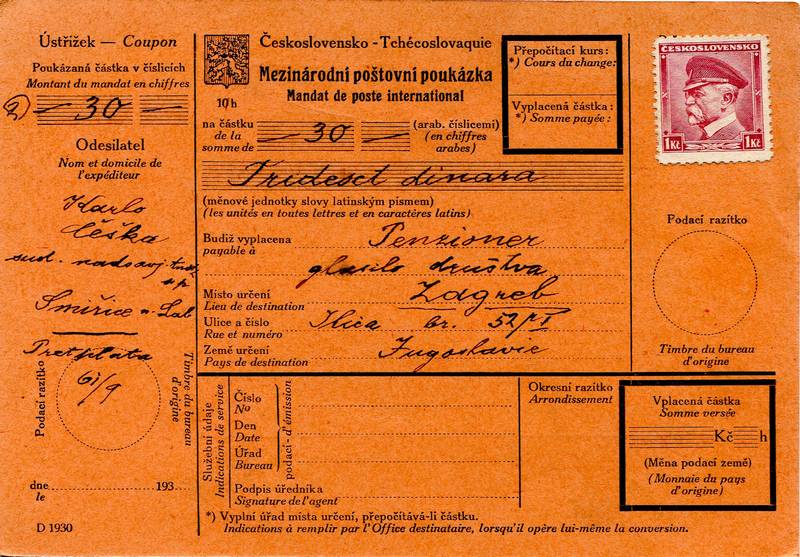 Ústřižek — Coupon
Poukázaná částka v číslicích
Montant du mandat en chiffres
— 30 —
Odesilatel
Nom et domicile de
l'expéditeur
Karlo
Češka
Smiřice n. Lab
Pretplata
61/9
Podací razítko
Timbre du bureau
d'origine
dne 193
le
D 1930
Československo - Tchécoslovaquie
Mezinárodní poštovní poukázka
Mandat de poste international
10 h
na částku
de la
somme de
— 30 —
(arab. číslicemi)
(en chiffres
arabes)
Trideset dinara
(měnové jednotky slovy latinským písmem)
(les unités en toutes lettres et en caractères latins)
Budiž vyplacena
payable à
Penzioner
glasilo društva
Místo určení
Lieu de destination
Zagreb
Ulice a číslo
Rue et numéro
Ilica br. 52/VI
Země určení
Pays de destination
Jugoslavie
Přepočítací kurs:
*) Cours du change:
Vyplacená částka:
*) Somme payée:
ČESKOSLOVENSKO
1Kč 1Kč
Podací razítko
Timbre du bureau
d'origine
Služební údaje
Indications de service
Číslo
No
Den
Date
Úřad
Bureau
podací - d'émission
Podpis úředníka
Signature de l'agent
Okresní razítko
Arrondissement
Vplacená částka
Somme versée
Kč h
(Měna podací země)
(Monnaie du pays
d'origine)
*) Vyplní úřad místa určení, přepočítává-li částku.
Indications à remplir par l'Office destinataire, lorsqu'il opère lui-même la conversion.